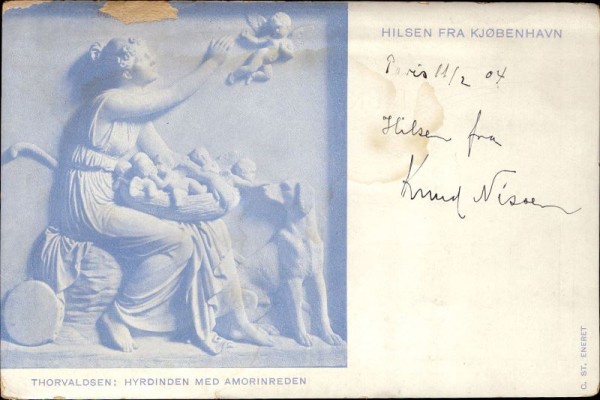 HILSEN FRA KJØBENHAVN
Paris 11/2 04
Hilsen fra
Knud Nissen
THORVALDSEN: HYRDINDEN MED AMORINREDEN
C. ST. ENERET